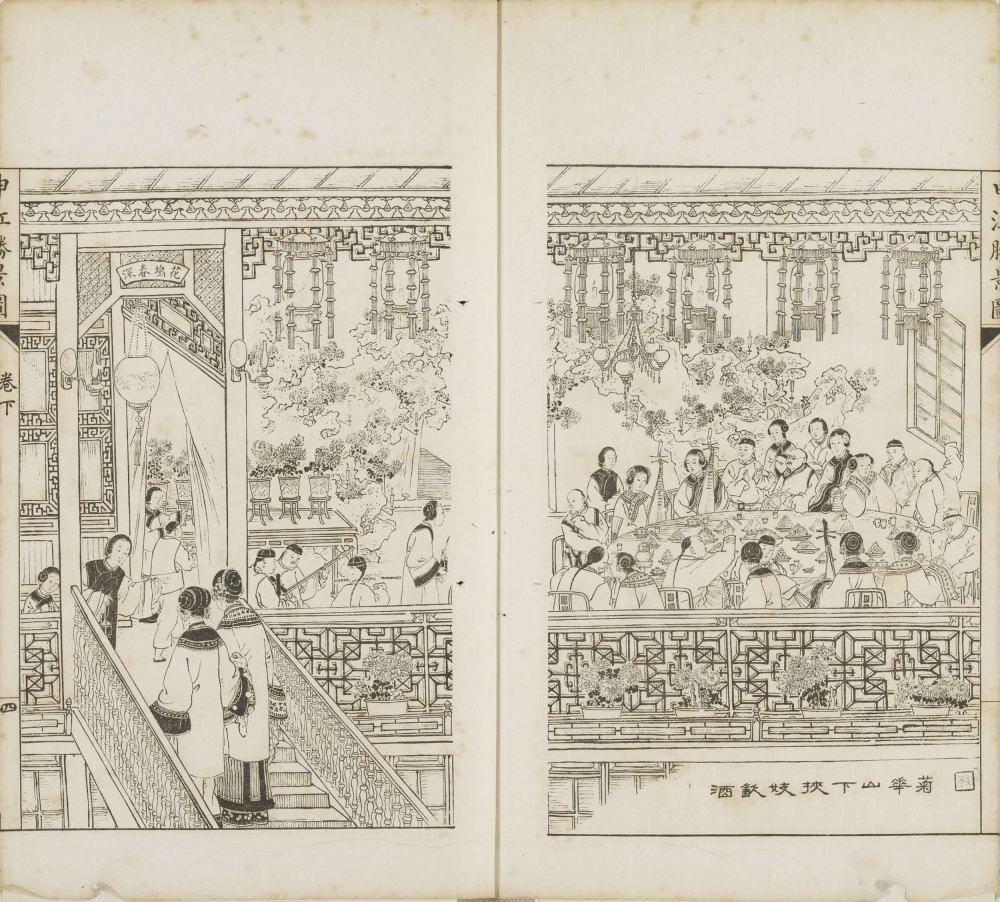 申江勝景圖
菊華山下挾妓㱃酒
花塢春深
申江勝景圖
卷下
四